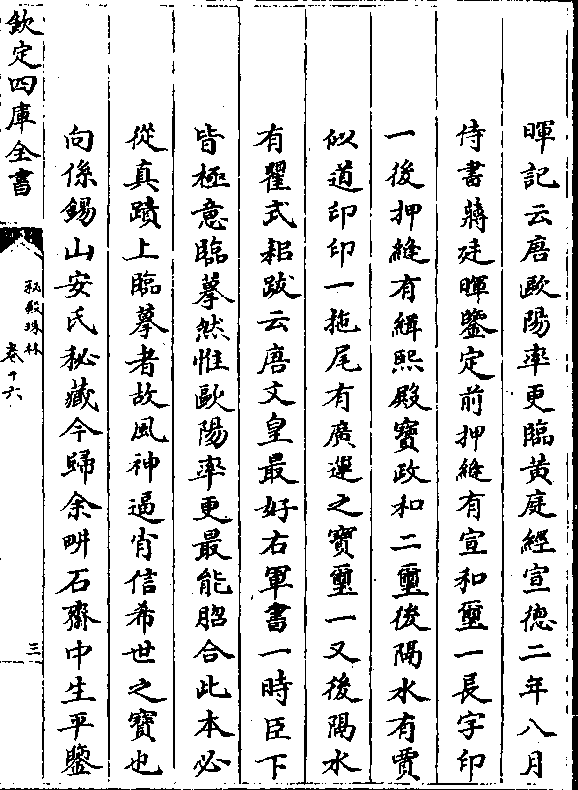 暉記云唐歐陽率更臨黃庭經宣德二年八月
侍書蔣廷暉鑒定前押縫有宣和璽一長字印
一後押縫有緝熙殿寶政和二璽後隔水有賈
似道印印一拖尾有廣運之寶璽一又後隔水
有瞿式耜跋云唐文皇最好右軍書一時臣下
皆極意臨摹然惟歐陽率更最能脗合此本必
從真蹟上臨摹者故風神逼肖信希世之寶也
向係錫山安氏秘藏今歸余畊石齋中生平鑒
欽定四庫全書
秘殿珠林
卷十六
三